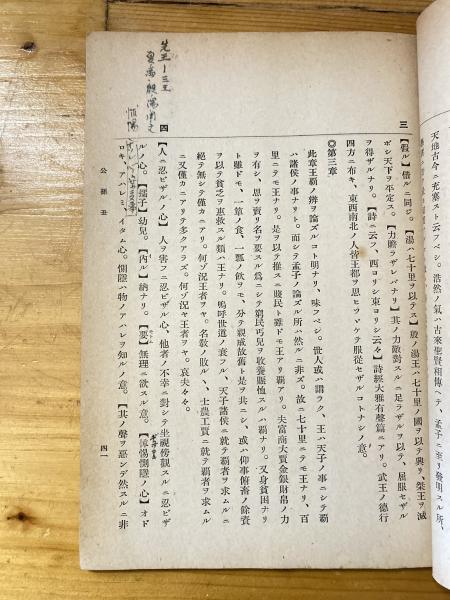 天地古今ニ充塞スト云フベシ。浩然ノ氣ハ古來聖賢相傳ヘテ、孟子ニ至リ發明スル所、
三【假ル】借ルニ同ジ。【湯ハ七十里ヲ以テス】殷ノ湯王ハ七十里ノ國ヲ以テ興リ、桀王ヲ滅
ボシ天下ヲ平定ス。【力瞻ラザレバナリ】其ノ力敵對スルニ足ラザルヲ以テ、屈服セザル
ヲ得ザルナリ。【詩ニ云フ、西ヨリシ東ヨリシ云々】詩經大雅有聲篇ニアリ。武王ノ德行
四方ニ布キ、東西南北ノ人皆王都ヲ思ヒヲヽケテ服從セザルコトナシノ意。
◎第三章
此章王覇ノ辨ヲ論ズルコト明ナリ、味フベシ。世人或ハ謂ラク、王ハ天子ノ事ニシテ覇
ハ諸侯ノ事ナリト。而シテ孟子ノ論ズル所ハ然ルニ非ズ。故ニ七十里ニテモ王ナリ、百
里ニテモ王ナリ。是ヲ以テ推スニ賤民ト雖ドモ王アリ覇アリ。夫富商大賈金銀財帛ノ力
ヲ有シ、恩ヲ賣リ名ヲ要スル爲ニシテ窮民丐兒ヲ收養賑恤スルハ覇ナリ。又身貧困ナリ
ト雖ドモ、一簞ノ食、一瓢ノ飲ヲモ、分テ親戚故舊ト是ヲ共ニシ、或ハ仰事俯畜ノ餘資
ヲ以テ貧乏ヲ惠救スル類ハ王ナリ。嗚呼世道ノ衰フル、天子諸侯ニ就テ王者ヲ求ムルニ
絕テ無シテ僅カニアリ。何ゾ況王者ヲヤ。名敎ノ敗ルヽ、士農工賈ニ就テ覇者ヲ求ムル
ニ又僅カニアリテ多クアラズ。何ゾ況ヤ王者ヲヤ。哀夫々々。
四
【人ニ忍ビザルノ心】人ヲ害フニ忍ビザル心、他者ノ不幸ニ對シテ坐視傍觀スルニ忍ビザ
ルノ心。【孺子】幼兒。【內ル】納ナリ。【要】無理ニ欲スル意。【怵惕惻隱ノ心】オド
ロキ、アハレミ、イタム心。惻隱ハ物ノアハレヲ知ルノ意。【其ノ聲ヲ惡ンデ然スルニ非
公孫丑
四一
先王ー三王
怵惕